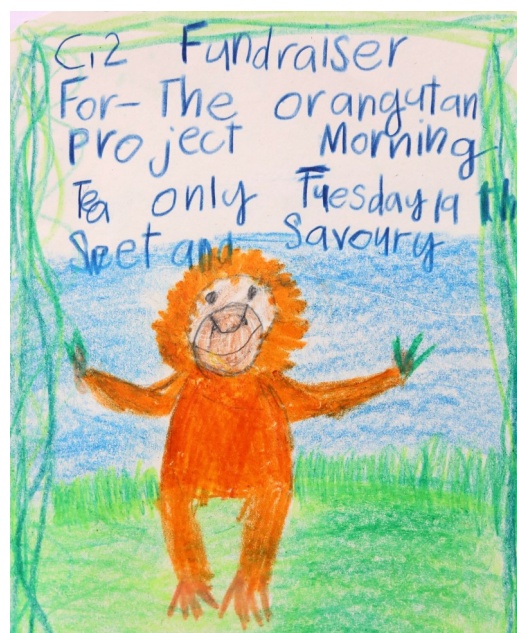 C12 Fundraiser
For- The orangutan
project Morning
Tea only Tuesday 19th
Sweet and Savoury